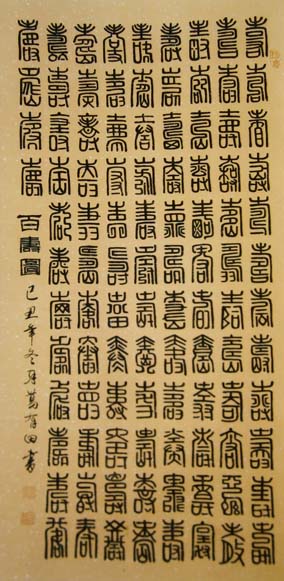 壽壽壽壽壽壽壽壽壽壽壽壽
壽壽壽壽壽壽壽壽壽壽壽壽
壽壽壽壽壽壽壽壽壽壽壽壽
壽壽壽壽壽壽壽壽壽壽壽壽
壽壽壽壽壽壽壽壽壽壽壽壽
壽壽壽壽壽壽壽壽壽壽壽壽
壽壽壽壽壽壽壽壽壽壽壽壽
壽壽壽壽壽壽壽壽壽壽壽壽
壽壽壽壽
百壽圖
己丑年冬月萬有田書